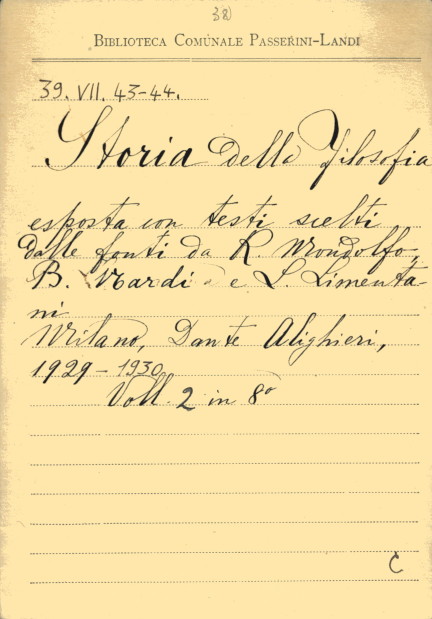 38
BIBLIOTECA COMUNALE PASSERINI-LANDI
39. VII. 43-44.
Storia della Filosofia
esposta con testi scelti
dalle fonti da R. Mondolfo,
B. Nardi e L. Limenta-
ni
Milano, Dante Alighieri,
1929-1930
Voll. 2 in 8º
C